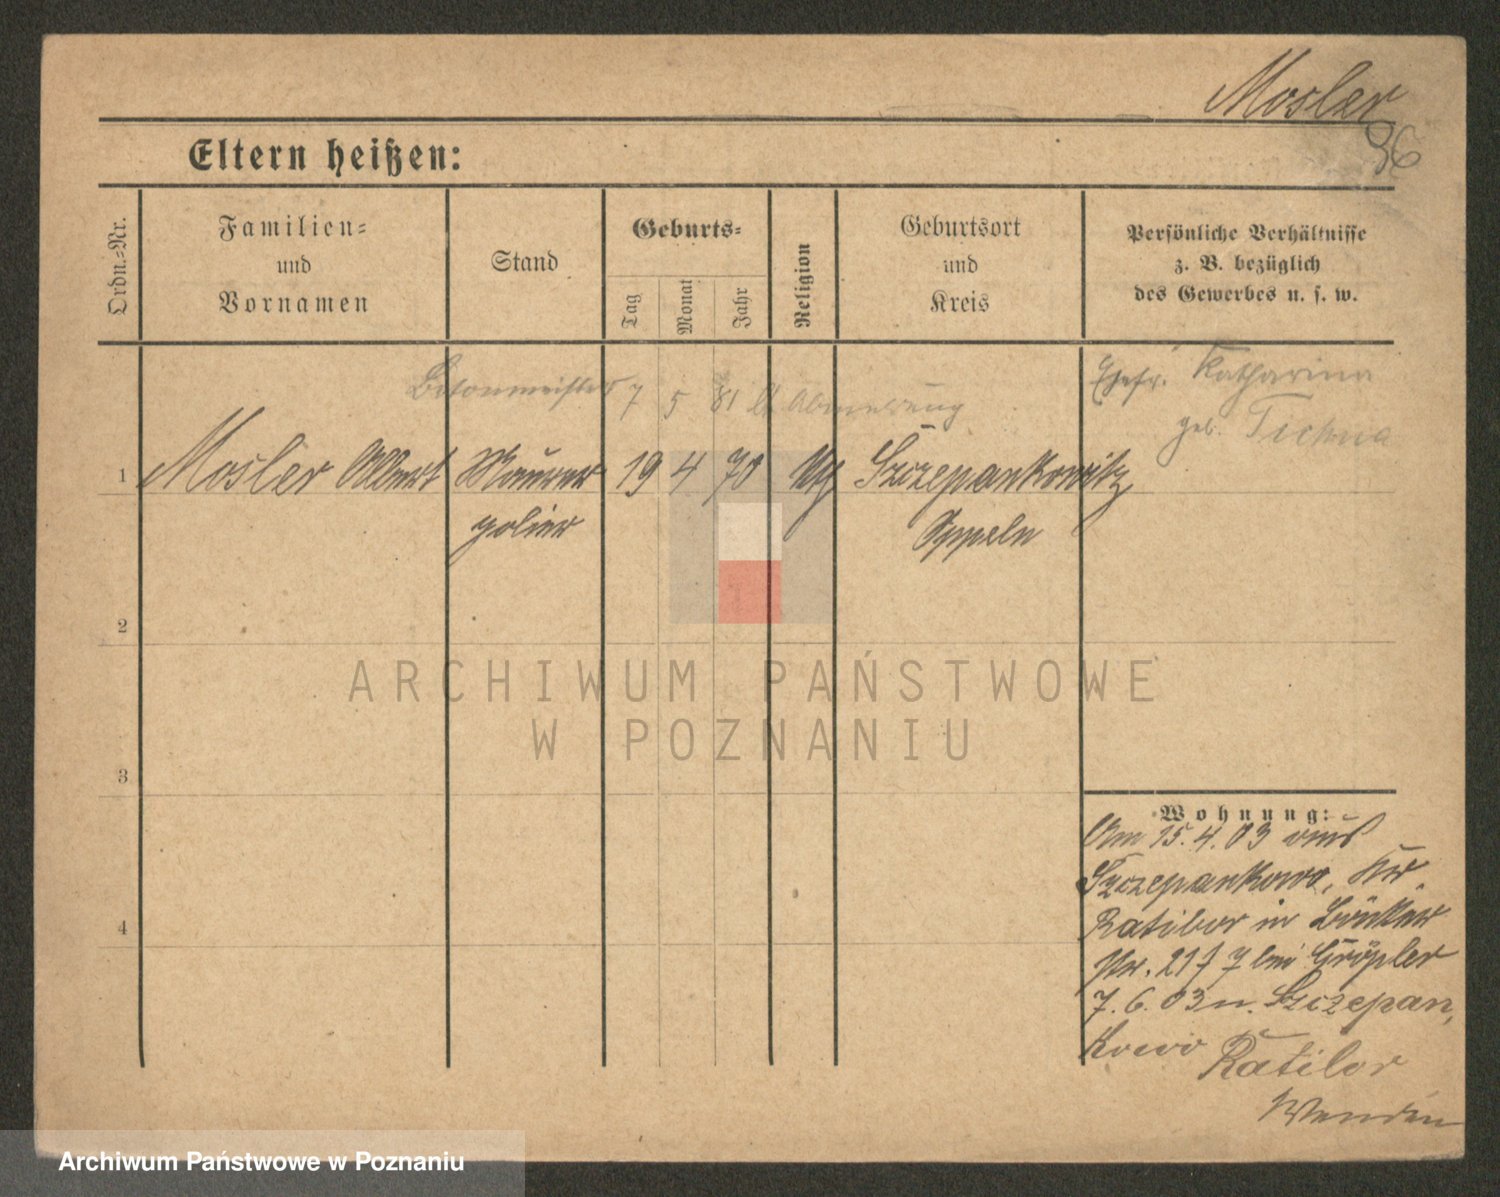 Mosler
36
Eltern heißen:
Ordn.-Nr.
Familien-
und
Vornamen
Stand
Geburts-
Tag
Monat
Jahr
Religion
Geburtsort
und
Kreis
Persönliche Verhältnisse
z. B. bezüglich
des Gewerbes u. s. w.
Betonmeister 7 5 81
Ehefr. Katharina
geb. Tichna
1 Mosler Albert Maurer 19 4 70 Szczepankowitz
polier Oppeln
2
3
4
ARCHIWUM PAŃSTWOWE
W POZNANIU
Wohnung:
Am 15.4.03 aus
Szczepankowo, Kr.
Ratibor in
Nr. bei Gröpler
7.6.03 n. Szczepan,
kowo Ratibor
Wenden
Archiwum Państwowe w Poznaniu